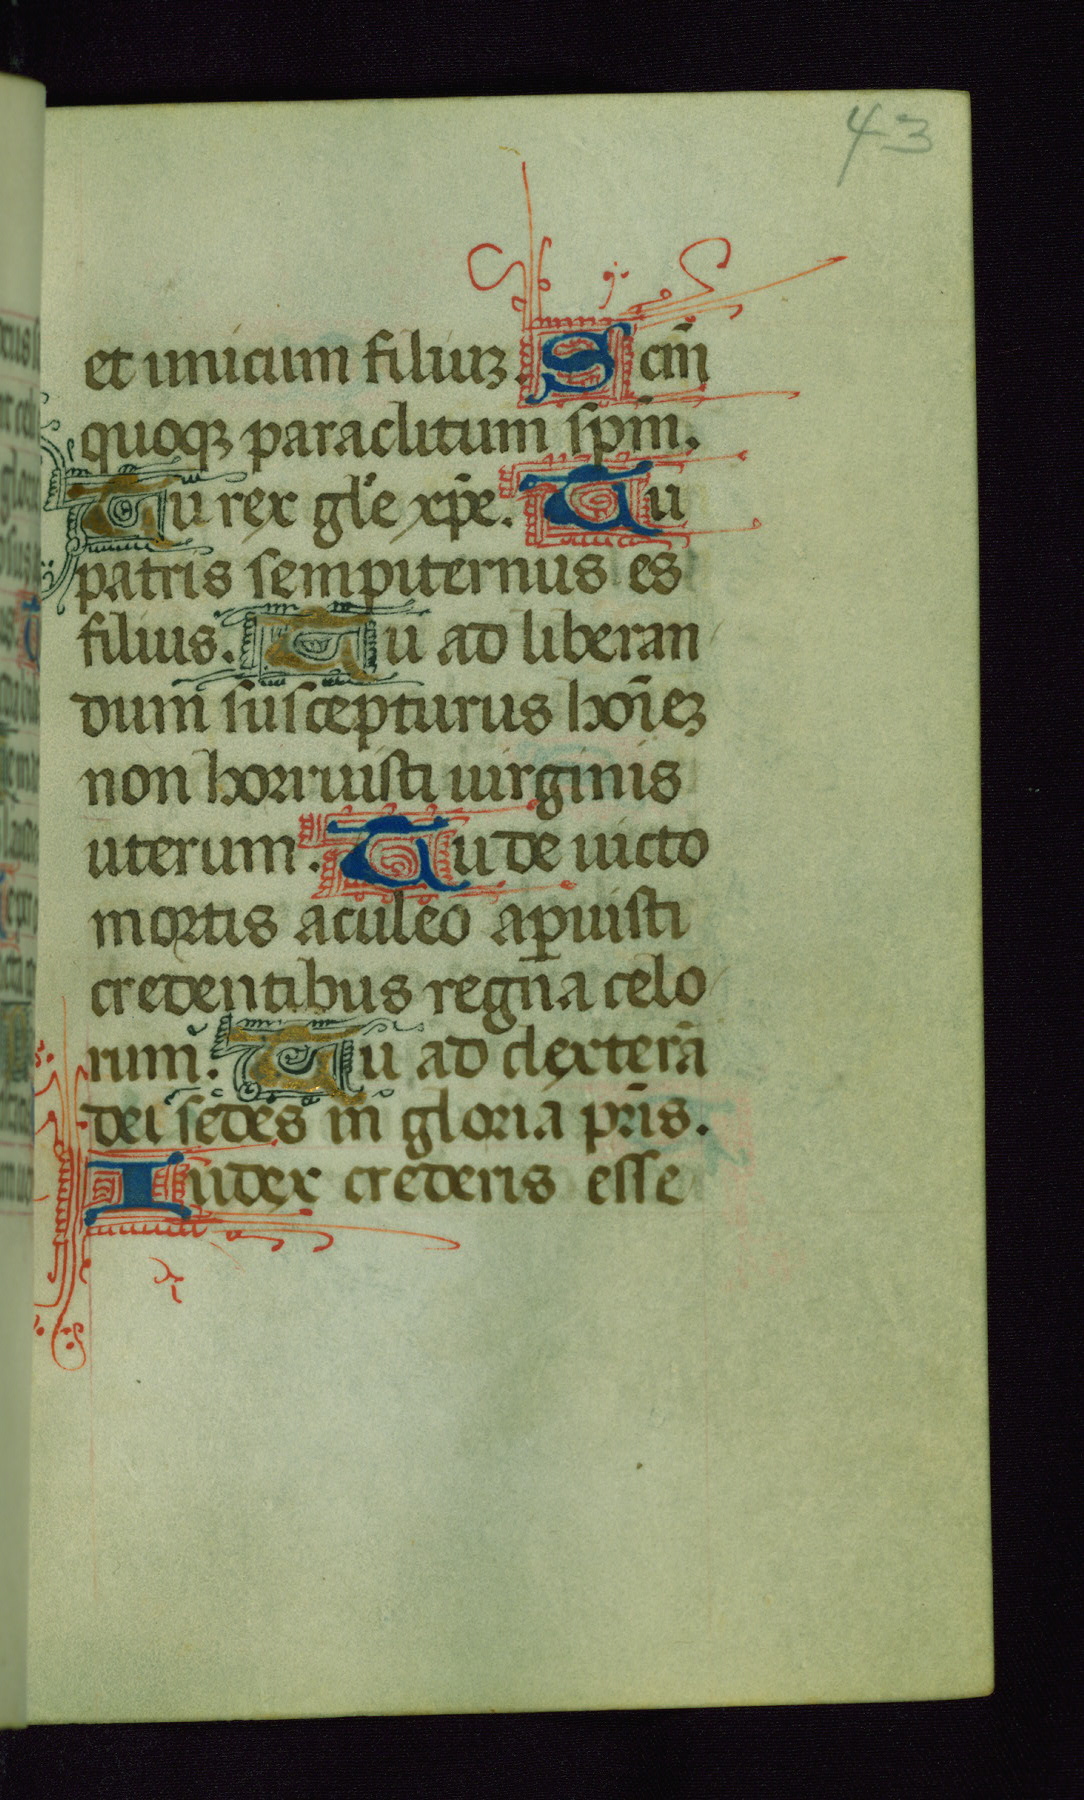 43
et unicum filiuꝫ. Scm̄
quoqꝫ paraclitum spm̄.
Tu rex gl'e xp̄e. Tu
patris sempiternus es
filius. Tu ad liberan
dum suscepturus hōieꝫ
non horruisti uirginis
uterum. Tu de uicto
mortis aculeo aꝑuisti
credentibus regna celo
rum. Tu ad dexterā
dei sedes in gloria pr̄is.
Iudex crederis esse